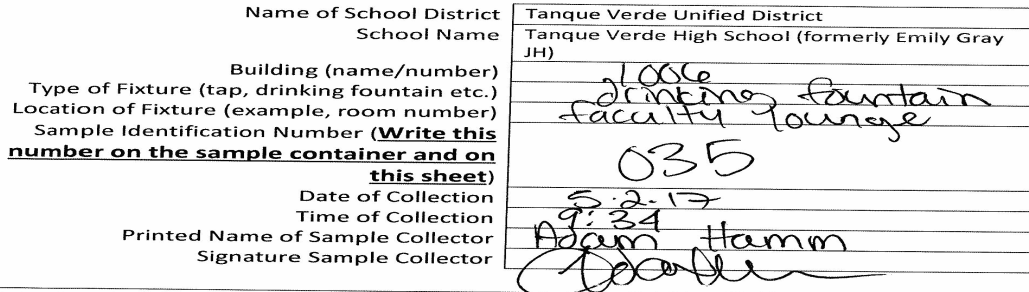 Name of School District Tanque Verde Unified District
School Name Tanque Verde High School (formerly Emily Gray
JH)
Building (name/number) 1006
Type of Fixture (tap, drinking fountain etc.) drinking fountain
Location of Fixture (example, room number) faculty lounge
Sample Identification Number (Write this
number on the sample container and on
this sheet) 035
Date of Collection 5.2.17
Time of Collection 9:34
Printed Name of Sample Collector Adam Hamm
Signature Sample Collector